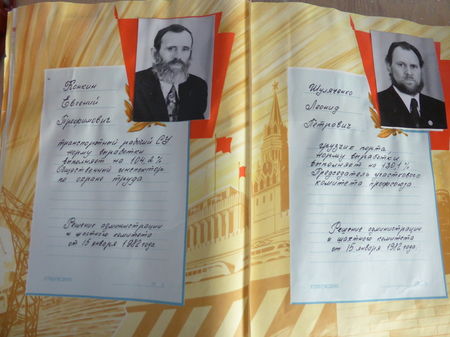 Конкин
Евгений
Трофимович
транспортной рабочий ВУ
норму выработки
выполняет на 104,2 %
Общественный инспектор
по охране труда
Решение администрации
и шахтного комитета
от 15 января 1982 года
Шулаченко
Леонид
Петрович
грузчик порта
норму выработки
выполняет на 130,1 %
Председатель участкового
комитета профсоюза
Решение администрации
и шахтного комитета
от 15 января 1982 года